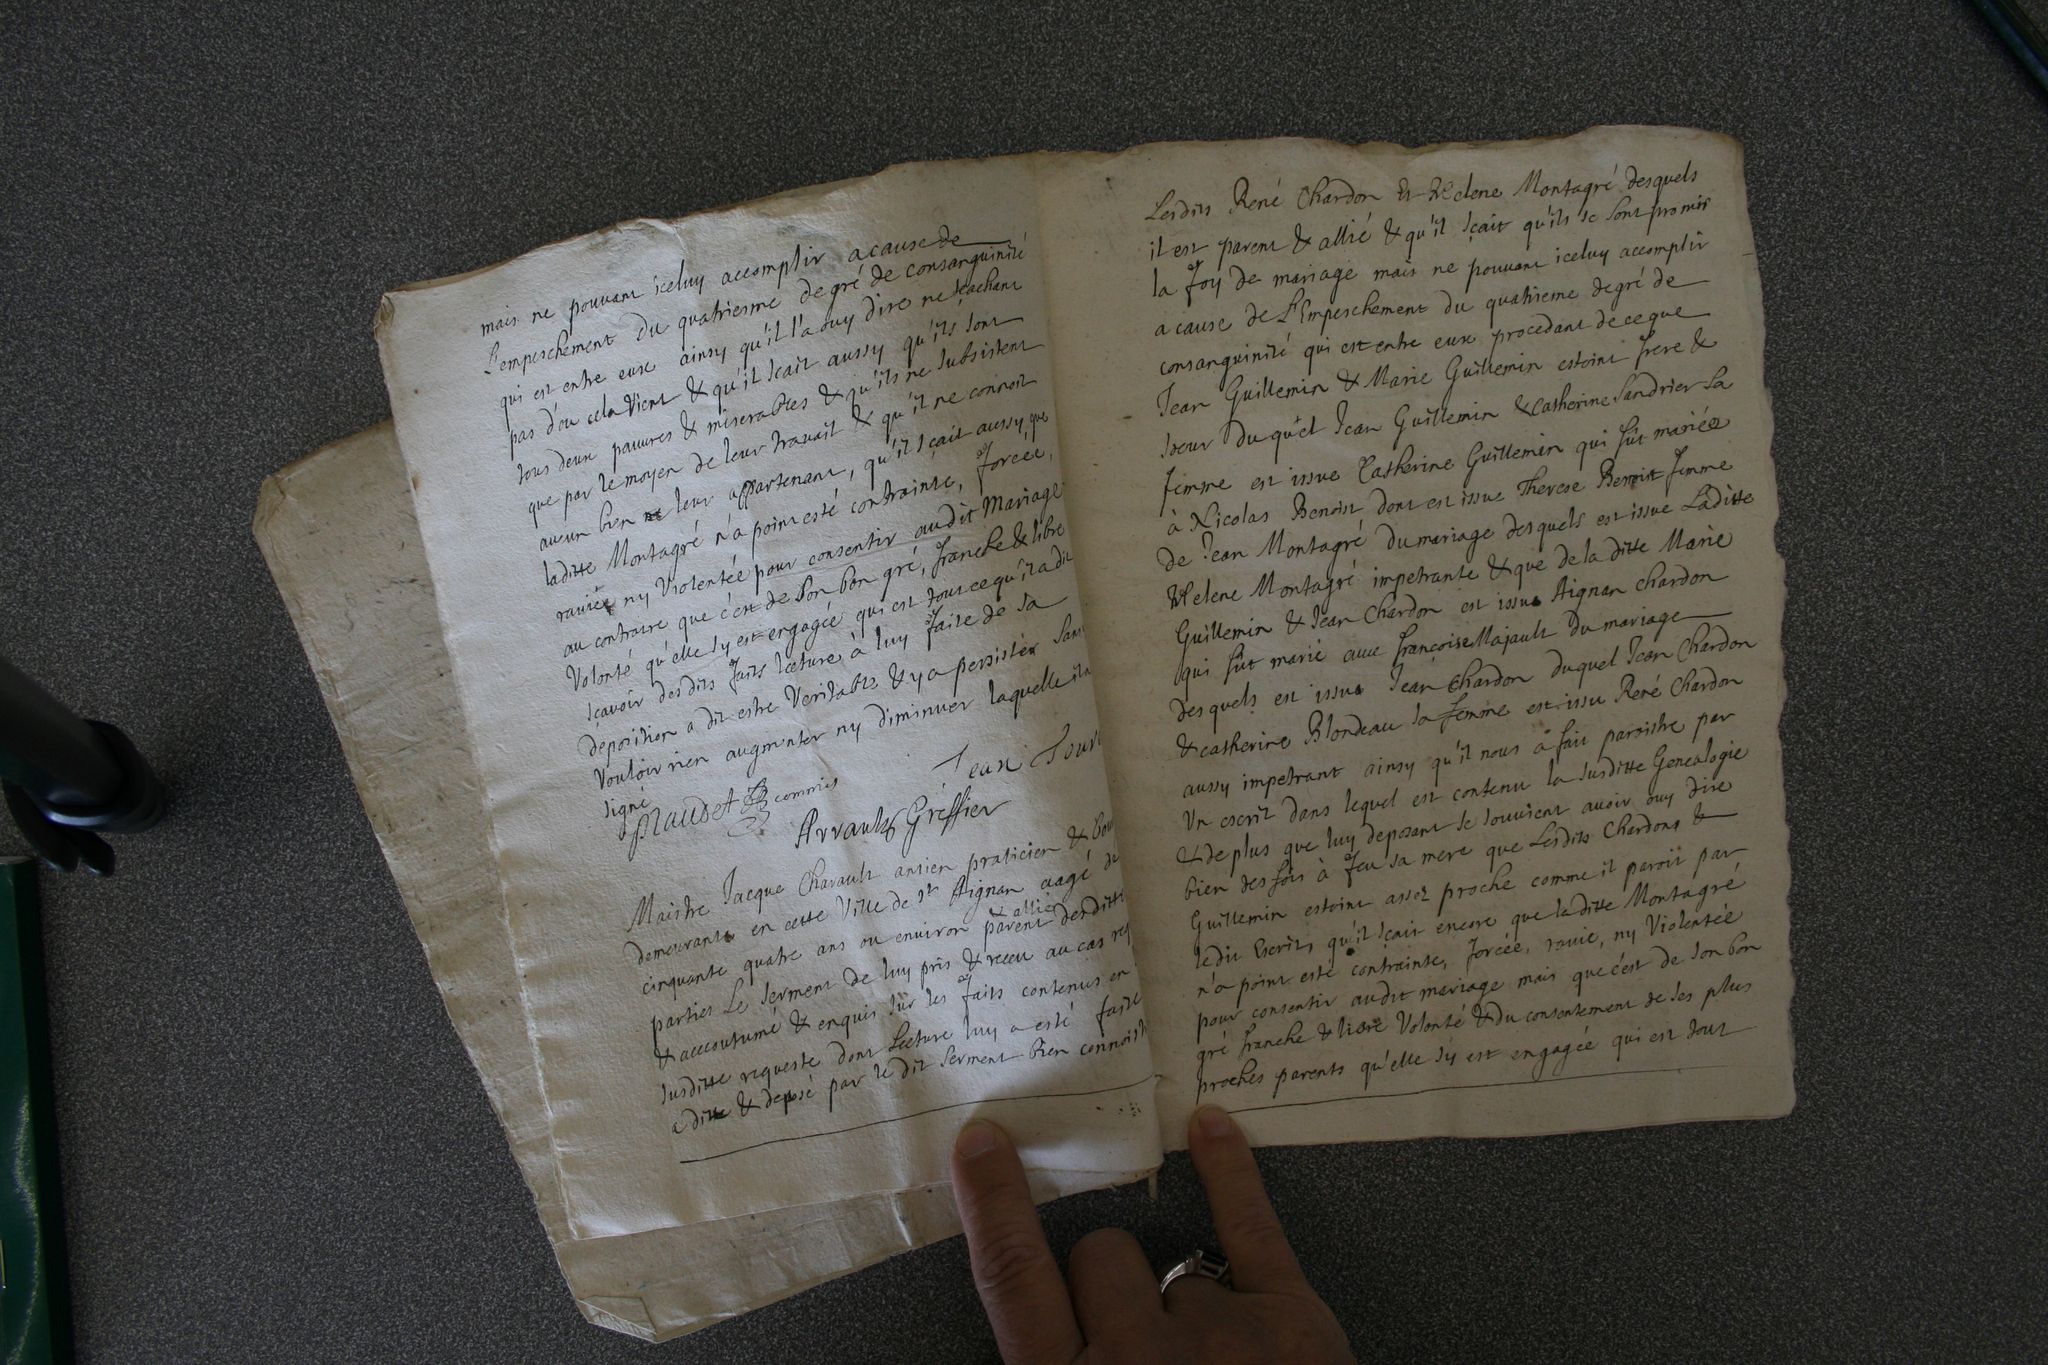 mais ne pouvant iceluy accomplir a cause de
l'empeschement du quatriesme degré de consanguinité
qui est entre eux ainsy qu'il l'a ouy dire ne scachant
pas d'ou cela vient & qu'il scait aussy qu'ils sont
tous deux pauures & miserables & qu'ils ne subsistent
que par le moyen de leur travail & qu'il ne connoit
aucun bien leur appartenant, qu'il sçait aussy que
laditte Montagré n'a point esté contrainte, forcée,
ravie, ny violentée pour consentir audit Mariage
au contraire que c'est de son bon gré, franche & libre
Volonté qu'elle s'y est engagée qui est tout ce qu'il a dit
sçavoir desdits faits lecture à luy faite de sa
deposition a dit estre Veritable & y a persister sans
Vouloir rien augmenter ny diminuer laquelle il a
signé
Naudet commis
Jean
Arrault Greffier
Maistre Jacque Charault antien praticien &
demeurant en cette Ville de St Aignan aagé de
& allié
cinquante quatre ans ou environ parent desditte
parties Le serment de luy pris & receu au cas
& accoutumé & enquis sur les faits contenus en
susditte requeste dont Lecture luy a esté faitte
a dit & deposé par le dit serment bien connoistre
Lesdits René Chardon Et Helene Montagré desquels
il est parent & allié & qu'il sçait qu'ils se sont promis
la foy de mariage mais ne pouvant iceluy accomplir
a cause de l'Empeschement du quatrieme degré de
consanguinité qui est entre eux procedant de ce que
Jean Guillemin & Marie Guillemin estoint frere &
soeur duquel Jean Guillemin & Catherine Sandrier sa
femme est issue Catherine Guillemin qui fût mariée
à Nicolas Benoist dont est issue Therese Benoist femme
de Jean Montagré du mariage desquels est issue Laditte
Helene Montagré impetrante & que de la ditte Marie
Guillemin & Jean Chardon est issu Aignan chardon
qui fût marié avec françoise Majault du mariage
desquels est issu Jean Chardon duquel Jean Chardon
& catherine Blondeau sa femme est issu René Chardon
aussy impetrant ainsy qu'il nous a fait paroistre par
Un escrit dans lequel est contenu la susditte Genealogie
& de plus que luy deposant se souvient avoir ouy dire
bien des fois à feu sa mere que Lesdits Chardons &
Guillemin estoint assez proche comme il paroit par
ledit Escrit, qu'il sçait encore que laditte Montagré
n'a point esté contrainte, forcée, ravie, ny Violentée
pour consentir audit mariage mais que c'est de son bon
gré franche & libre Volonté & du consentement de ses plus
proches parents qu'elle s'y est engagée qui est tout